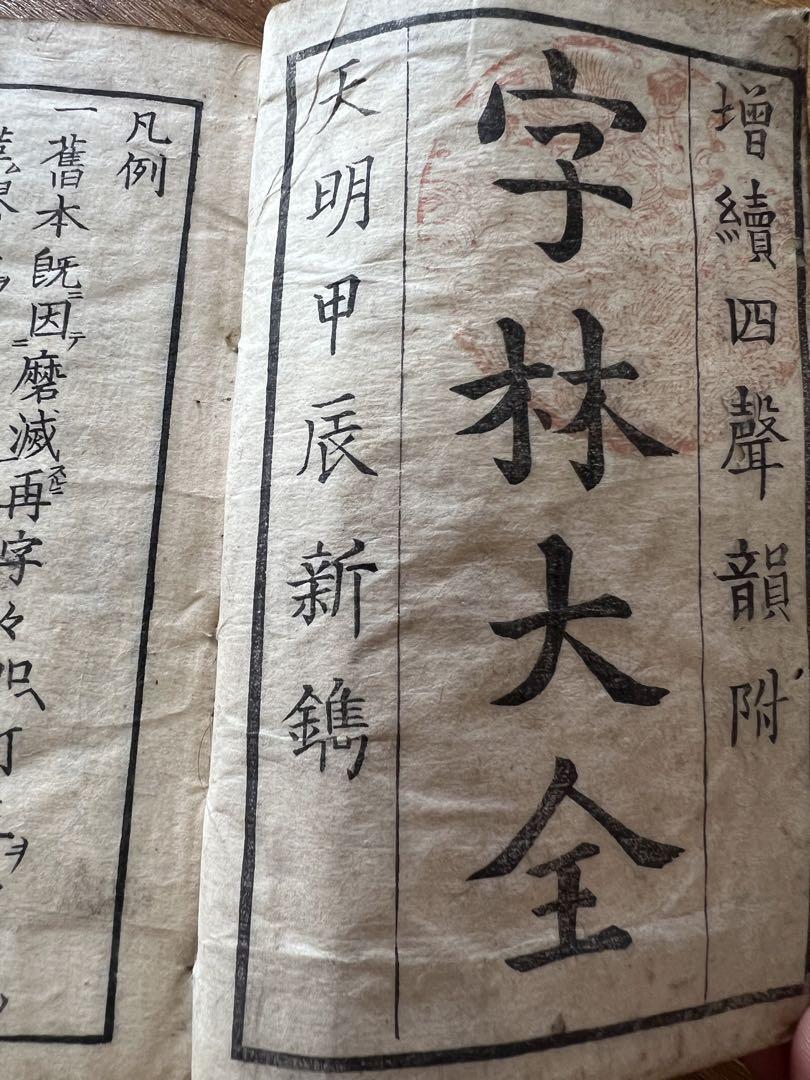 增續四聲韻附
字林大全
天明甲辰新鐫
凡例
一舊本既因ニテ磨滅スルニ再字々